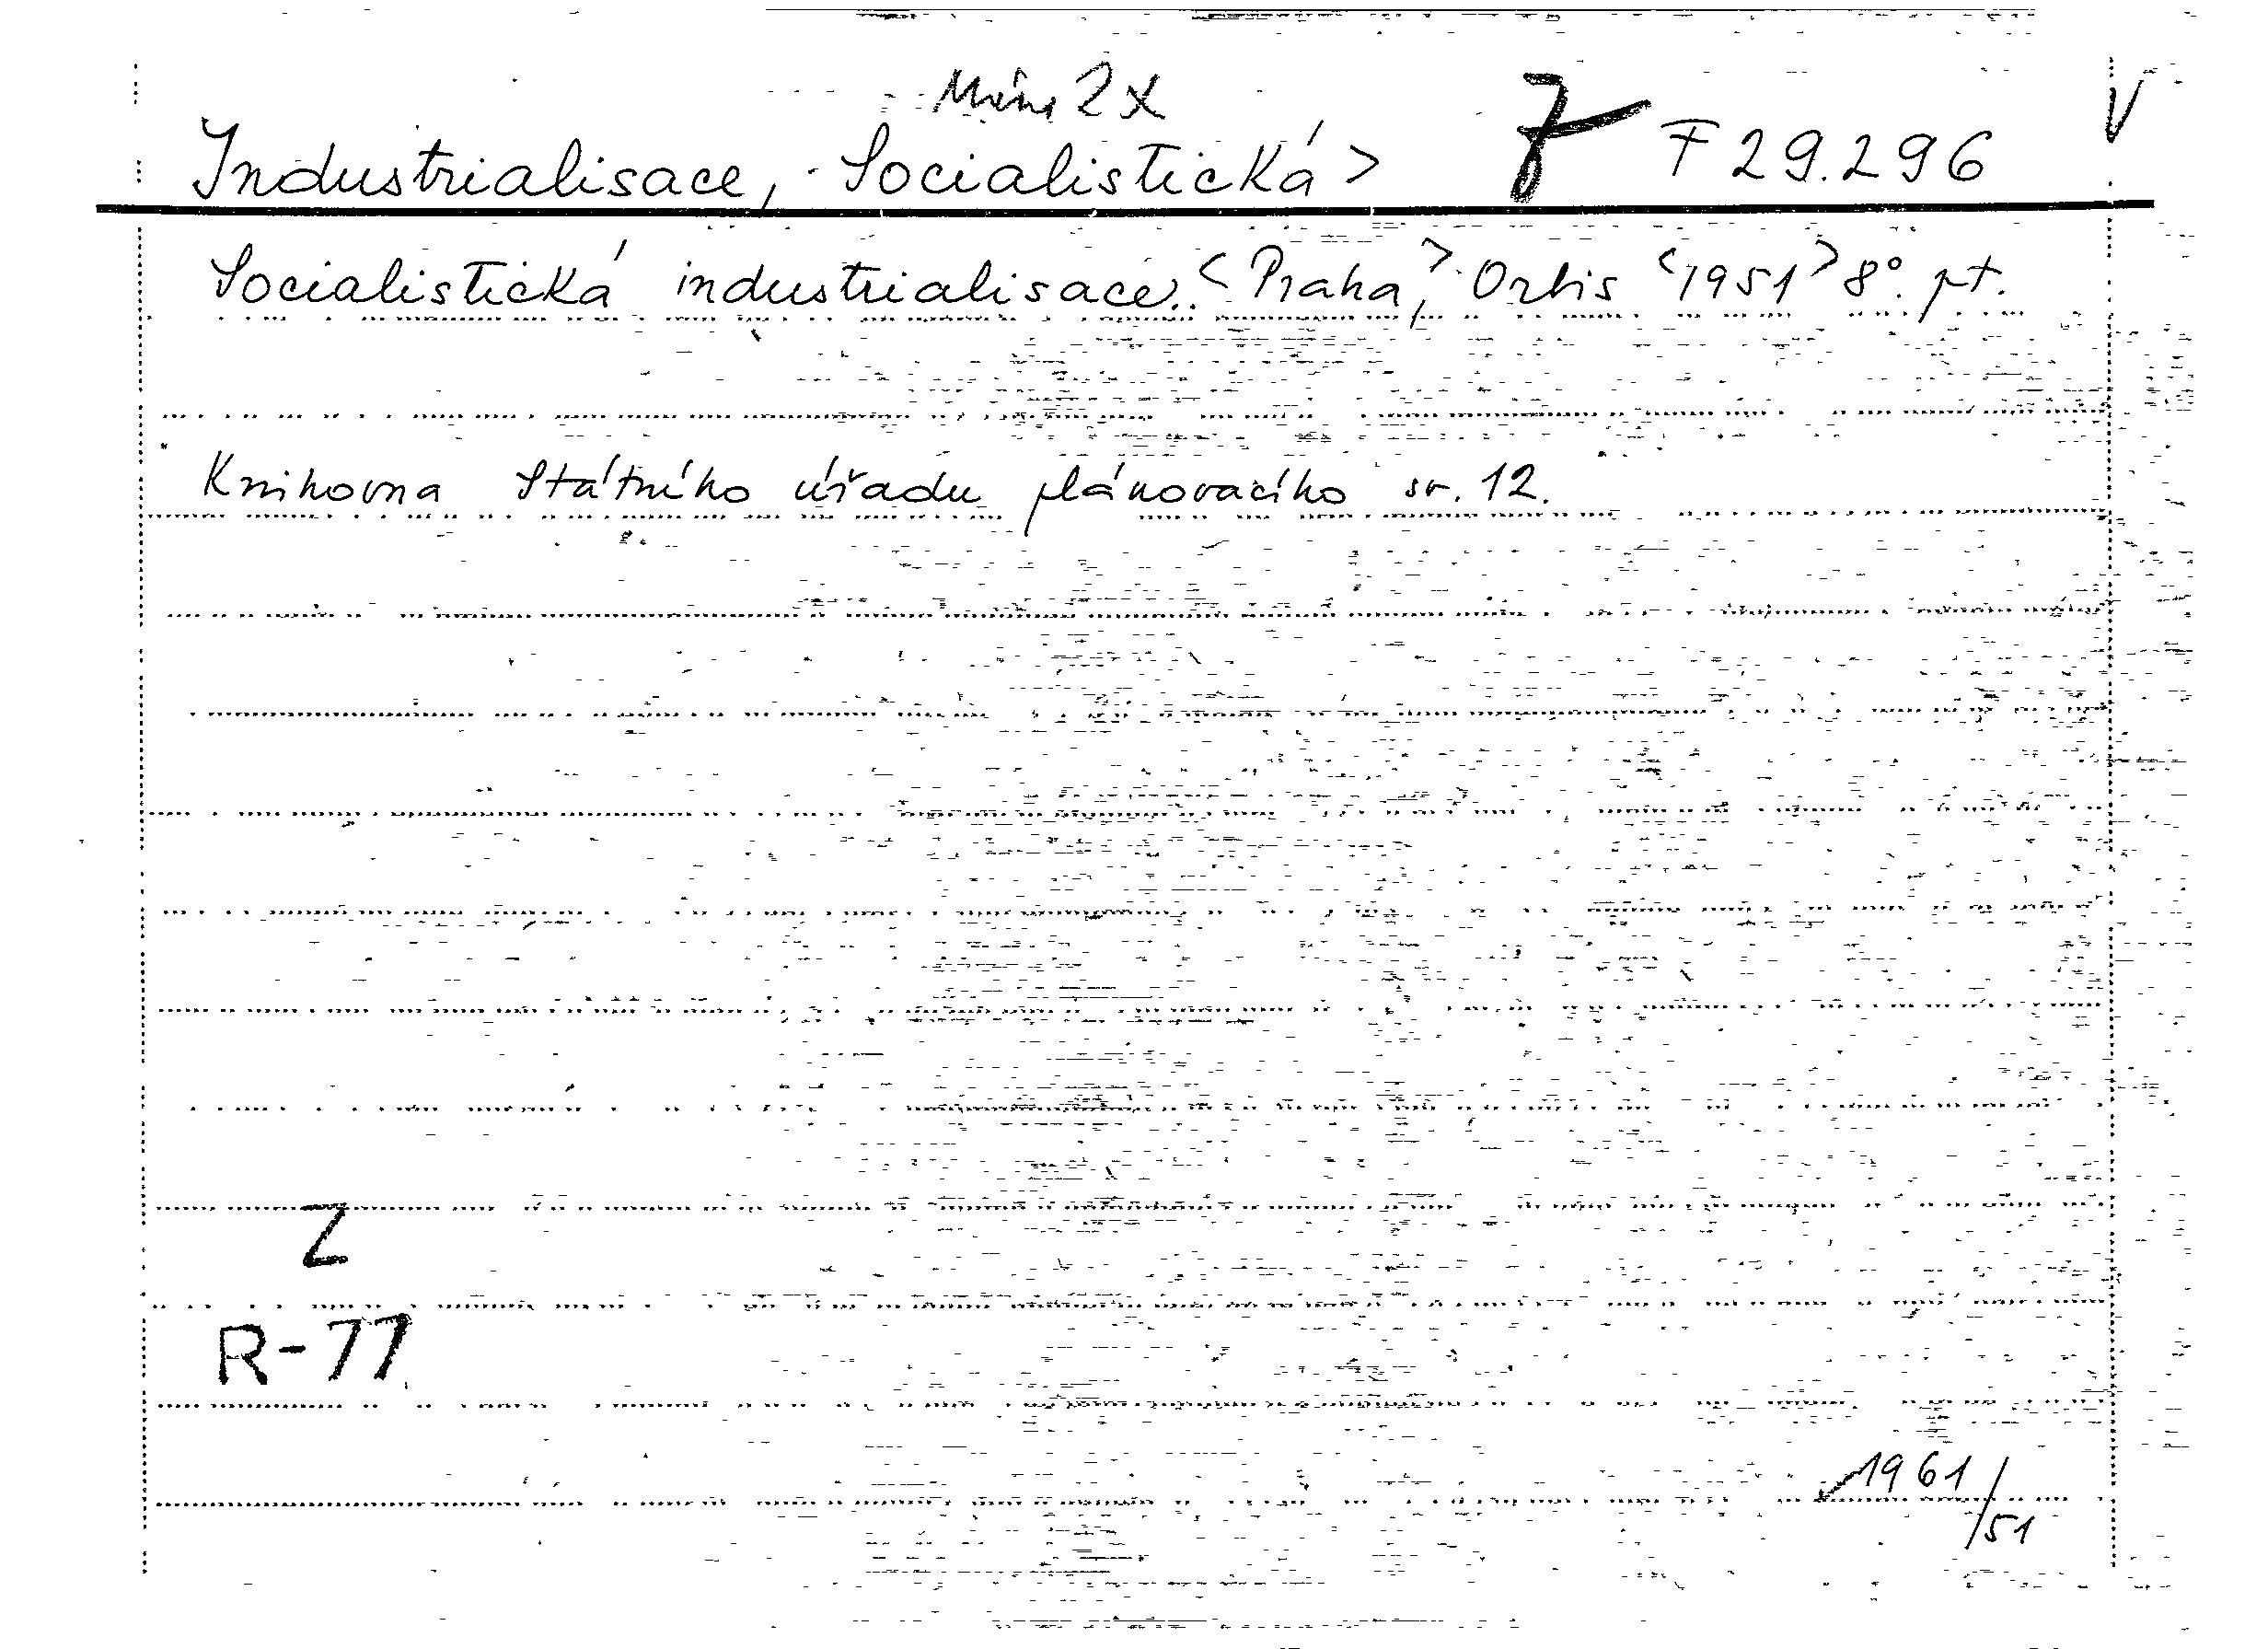 2x
Industrialisace, Socialistická> F 29.296 V
Socialistická industrialisace. <Praha,> Orbis <1951> 8°. pt.
Knihovna Státního úřadu plánovacího sv. 12.
Z
R-77
1961/51